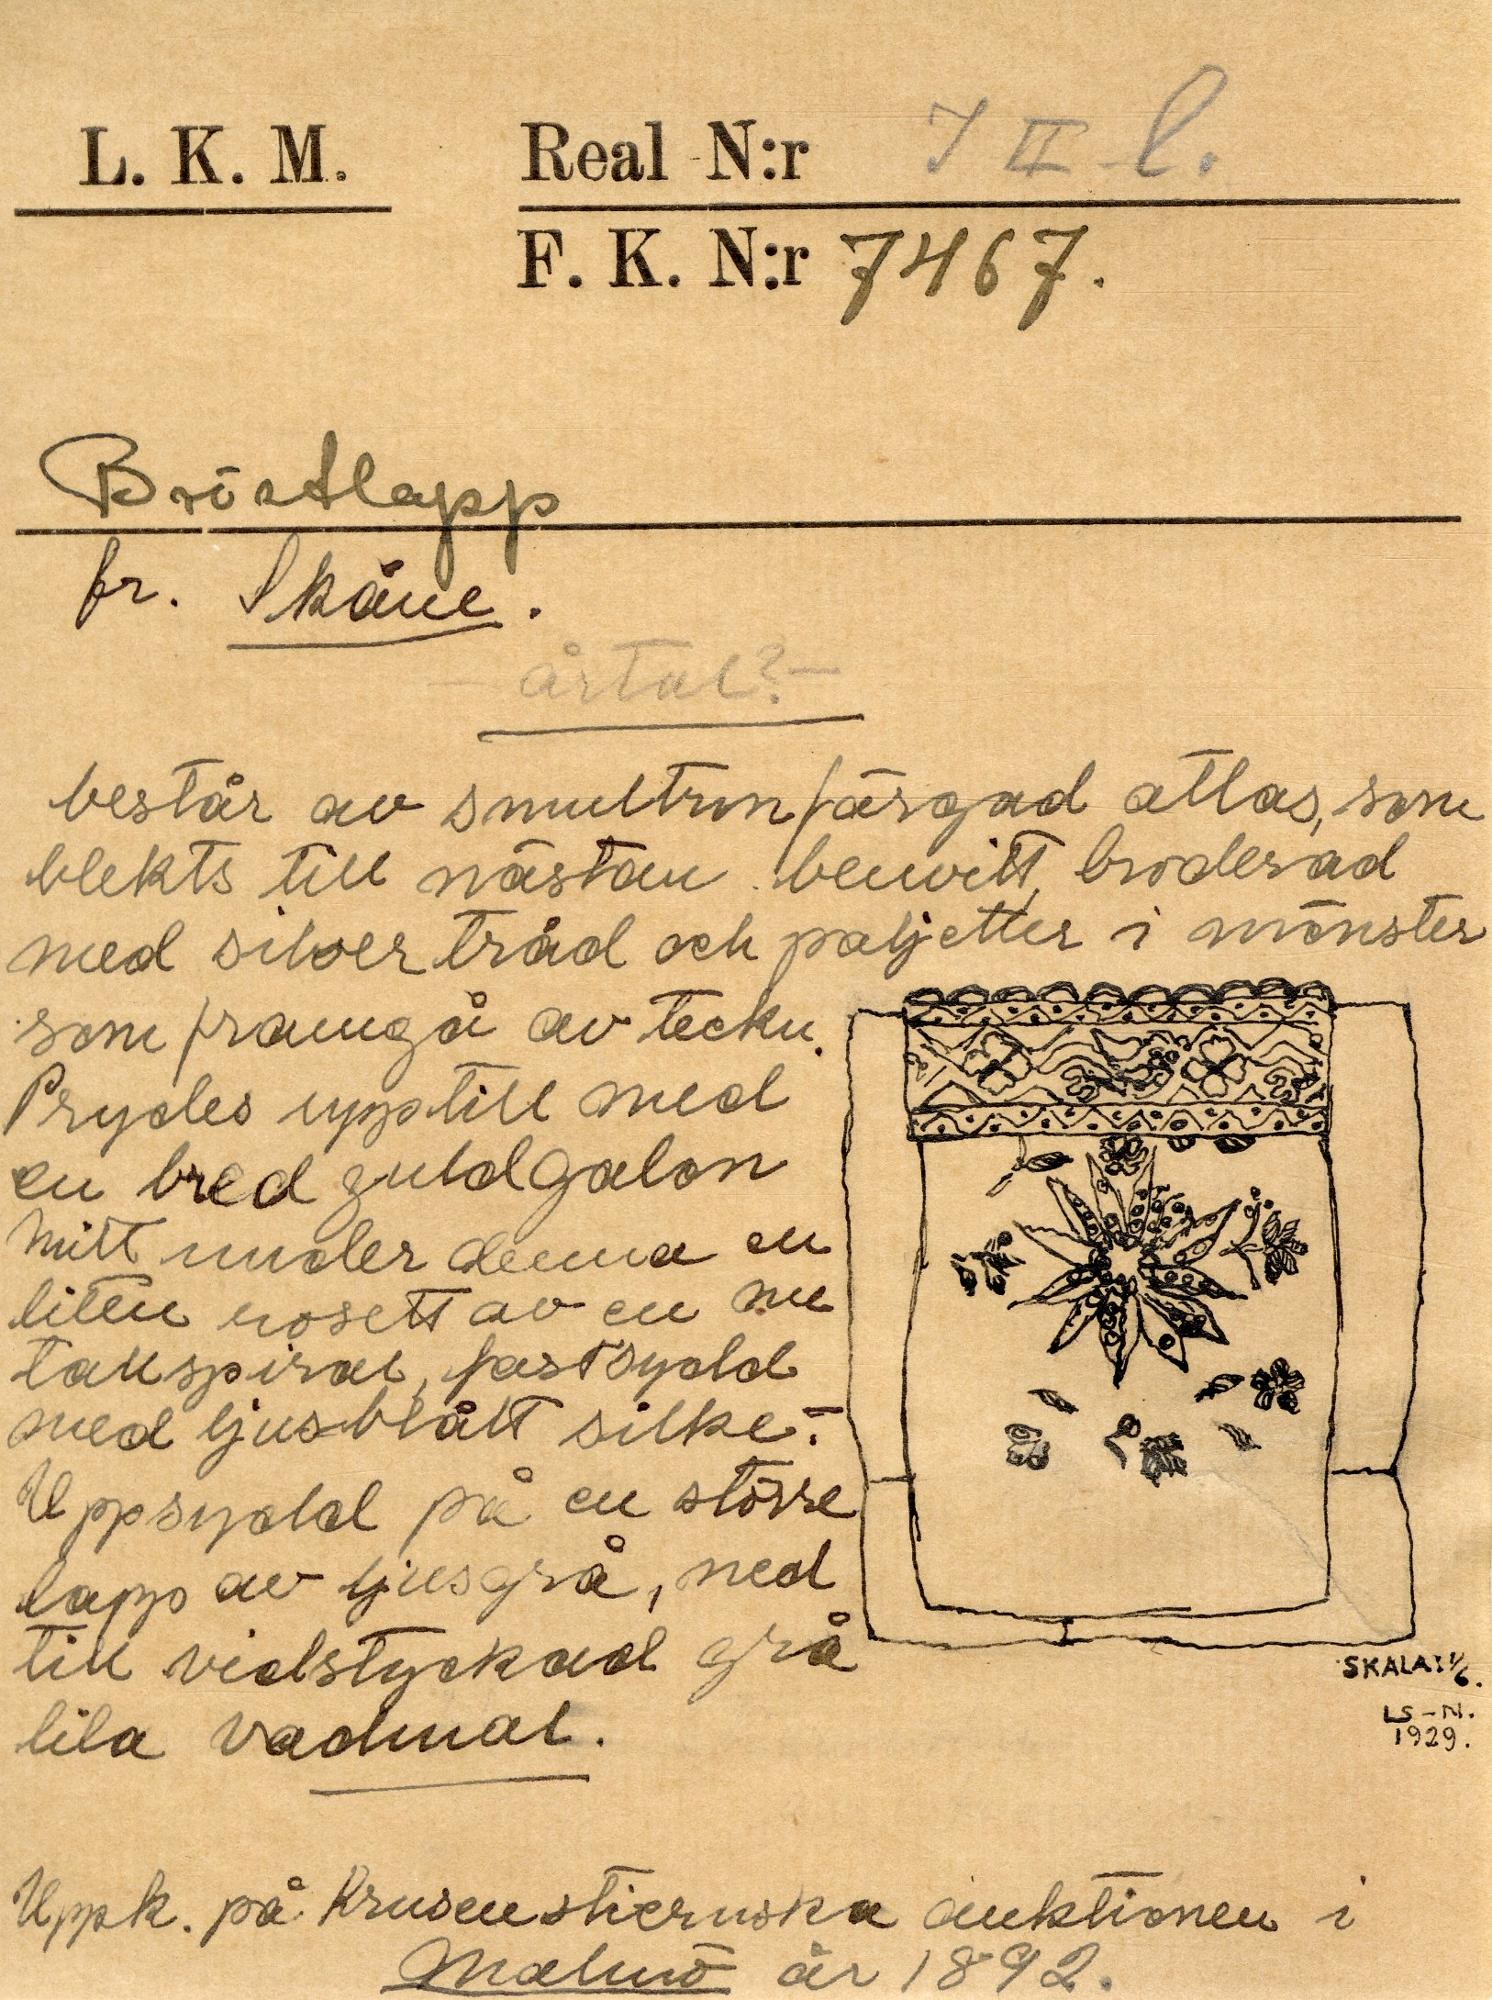 L. K. M.
Real N:r I II l.
F. K. N:r 7467.
Bröstlapp
fr. Skåne.
- årtal? -
består av smultronfärgad atlas, som
blekts till nästan benvitt, broderad
med silvertråd och paljetter i mönster
som framgå av teckn.
Prydes upptill med
en bred guldgalon
Mitt under denna en
liten rosett av en me
tallspiral, fastsydd
med ljusblått silke.-
Uppsydd på en större
lapp av ljusgrå, ned
till vidstyckad grå
lila vadmal.
SKALA: 1/6.
LS-N.
1929.
Uppk. på Krusenstiernska auktionen i
Malmö år 1892.